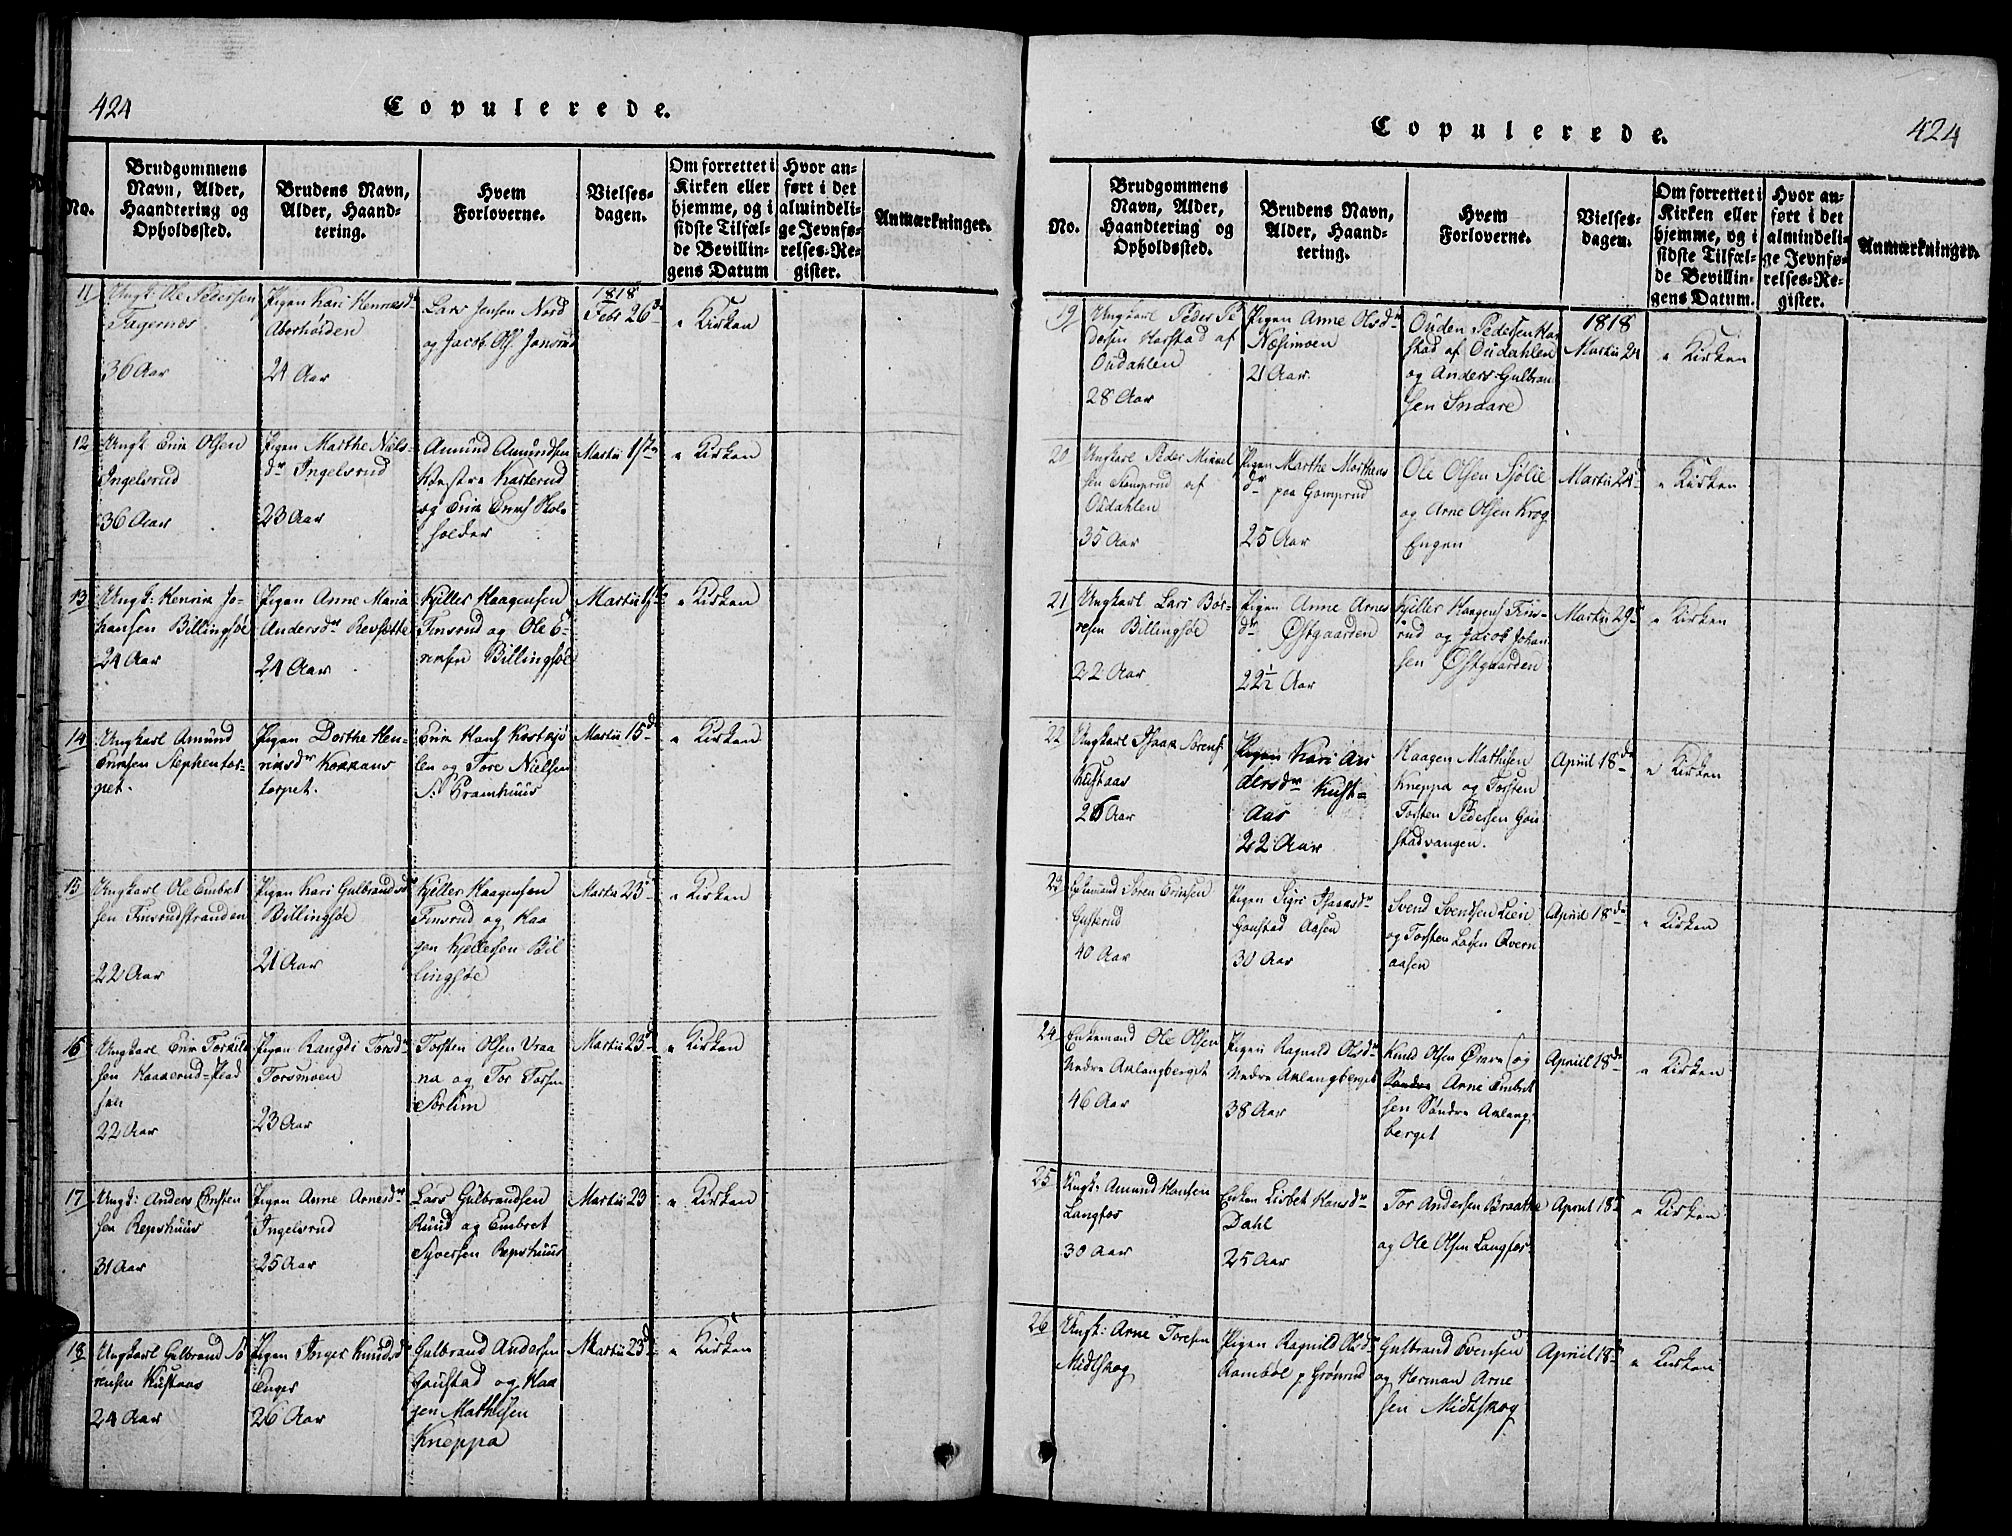 424
Copulerede.
No.
Brudgommens Navn, Alder, Haandtering og Opholdssted.
Brudens Navn, Alder, Haandtering.
Hvem Forloverne.
Vielsesdagen.
Om forrettet i Kirken eller hjemme, og i sidste Tilfælde Bevillingens Datum
Hvor anført i det almindelige Jevnførelses-Register.
Anmærkninger.
11
Ungk: Ole Pedersen
Fagernæs
36 Aar
Pigen Kari
24 Aar
Lars Jensen Nord
og Jacob Ols: Jonsrud
1818
Febr 26
" Kirken
12
Ungk Erik Olsen
Ingelsrud
36 Aar
Pigen Marthe Niels-
dr Ingelsrud
23 Aar
Amund Amundsen
Vestre Kasterud
og Erik
holder
Martii 1ste
" Kirken
13
Ungk: Henrik Jo-
hansen Billingsøe
24 Aar
Pigen Anne Maria
Andersdr Revsætte
24 Aar
Kjiller Haagensen
Finsrud og Ole E-
riksen Billingsøe
Martii
" Kirken
14
Ungkarl Amund
Eriksen Stephentor-
pet.
Pigen Dorthe Hen-
riksdr
torpet.
Erik Hans
len og Tore Nielsen
Framhuus
Martii 15de
" Kirken
15
Ungkarl Ole Embret
sen Finsrudstranden
22 Aar
Pigen Kari Gulbrandsdr
Billingsøe
21 Aar
Kjeller Haagensen
Finsrud og Haa
gen Kjellersen Bil
lingsøe
Martii 23d
" Kirken
16
Ungkarl Erik Torkild
sen
22 Aar
Pigen Rangdi Torsdr
Torsmoen
23 Aar
Torsten Olsen Vraa
na og Tor Torsen
Sorlim
Martii 23d
" Kirken
17
Ungk: Anders
sen Repshuus
31 Aar
Pigen Anne Arnesdr
Ingelsrud
25 Aar
Lars Gulbrandsen
Ruud og Embret
Syversen Repshuus
Martii 23
" Kirken
18
Ungkarl Gulbrand Sö
rensen Kustaas
24 Aar
Pigen Inger Knudsdr
Enger
26 Aar
Gulbrand Andersen
Gaustad og Haa
gen Mathisen
Kneppa
Martii 23d
" Kirken
424
Copulerede.
No.
Brudgommens Navn, Alder, Haandtering og Opholdssted.
Brudens Navn, Alder, Haandtering.
Hvem Forloverne.
Vielsesdagen.
Om forrettet i Kirken eller hjemme, og i sidste Tilfælde Bevillingens Datum.
Hvor anført i det almindelige Jevnførelses-Register.
Anmærkninger.
19
Ungkarl Peder Pe
dersen Harstad af
Oudahlen
28 Aar
Pigen Anne Olsdr
Næsimoen
21 Aar.
Ouden Pedersen Har
stad af Oudahlen
og Anders Gulbran
sen Snaare
1818
Martii 24
" Kirken
20
Ungkarl Peder Mikkel
sen Kamprud af
Oudahlen
35 Aar
Pigen Marthe Morthens
dr paa Gamprud
25 Aar
Ole Olsen Sjölie
og Arne Olsen Krog
Engen
Martii 24d
" Kirken
21
Ungkarl Lars Bør-
resen Billingsøe
22 Aar
Pigen Anne Arnes
dr Østgaarden
22½ Aar
Kjeller Haagens Fins-
rud og Jacob Johan
sen Østgaarden
Martii 29
" Kirken
22
Ungkarl Isaak Sørens:
Kustaas
26 Aar
Pigen Kari An
dersdr Kust-
Aas
22 Aar
Haagen Mathisen
Kneppa og Torsten
Torsten Pedersen Gau
stadvangen.
April 18de
" Kirken
23
Enkemand Søren Eriksen
Gusterud
40 Aar
Pigen Sigri Isaaksdr
Gaustad Aasen
30 Aar
Svend Svendsen Lien
og Torsten Larsen Overn
aasen
April 18de
" Kirken
24
Enkemand Ole Olsen
Nedre Aklangberget
46 Aar
Pigen Ragnild Olsdr
Nedre Aklangberget
38 Aar
Knud Olsen Øvre og
Søndre Arne Embret
sen Søndre Aklang
berget
April 18de
" Kirken
25
Ungk: Amund Hansen
Langfos
30 Aar
Enken Lisbet Hansdr
Dahl
25 Aar
Tor Andersen Braathe
og Ole Olsen Langfos
April 18d
" Kirken
26
Ungk: Arne Toresen
Midtskog
Pigen Ragnild Olsdr
Rambøl p Grönrud
Gulbrand Evensen
og Herman Arne
sen Midtskog
April 18
" Kirken